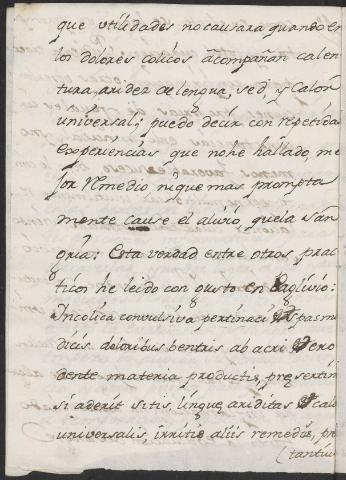 que utilidades no causara quando en
los dolores colicos acompañan calen
tura, aridez de lengua, sed, y Calor
universal; puedo decir con repetidas
experiencias que no he hallado, me
jor remedio ni que mas prompta
mente cause el alivio, que la San
gria: Esta verdad entre otros prac
ticos he leido con gusto en Baglivio:
In colica convulsiva pertinaci et spasmo
dicis doloribus bentris ab acri et ero
dente materia productis, presertim
si aderit sitis, lingue ariditas et calor
universalis, irritis aliis remediis, pre
(tantiu